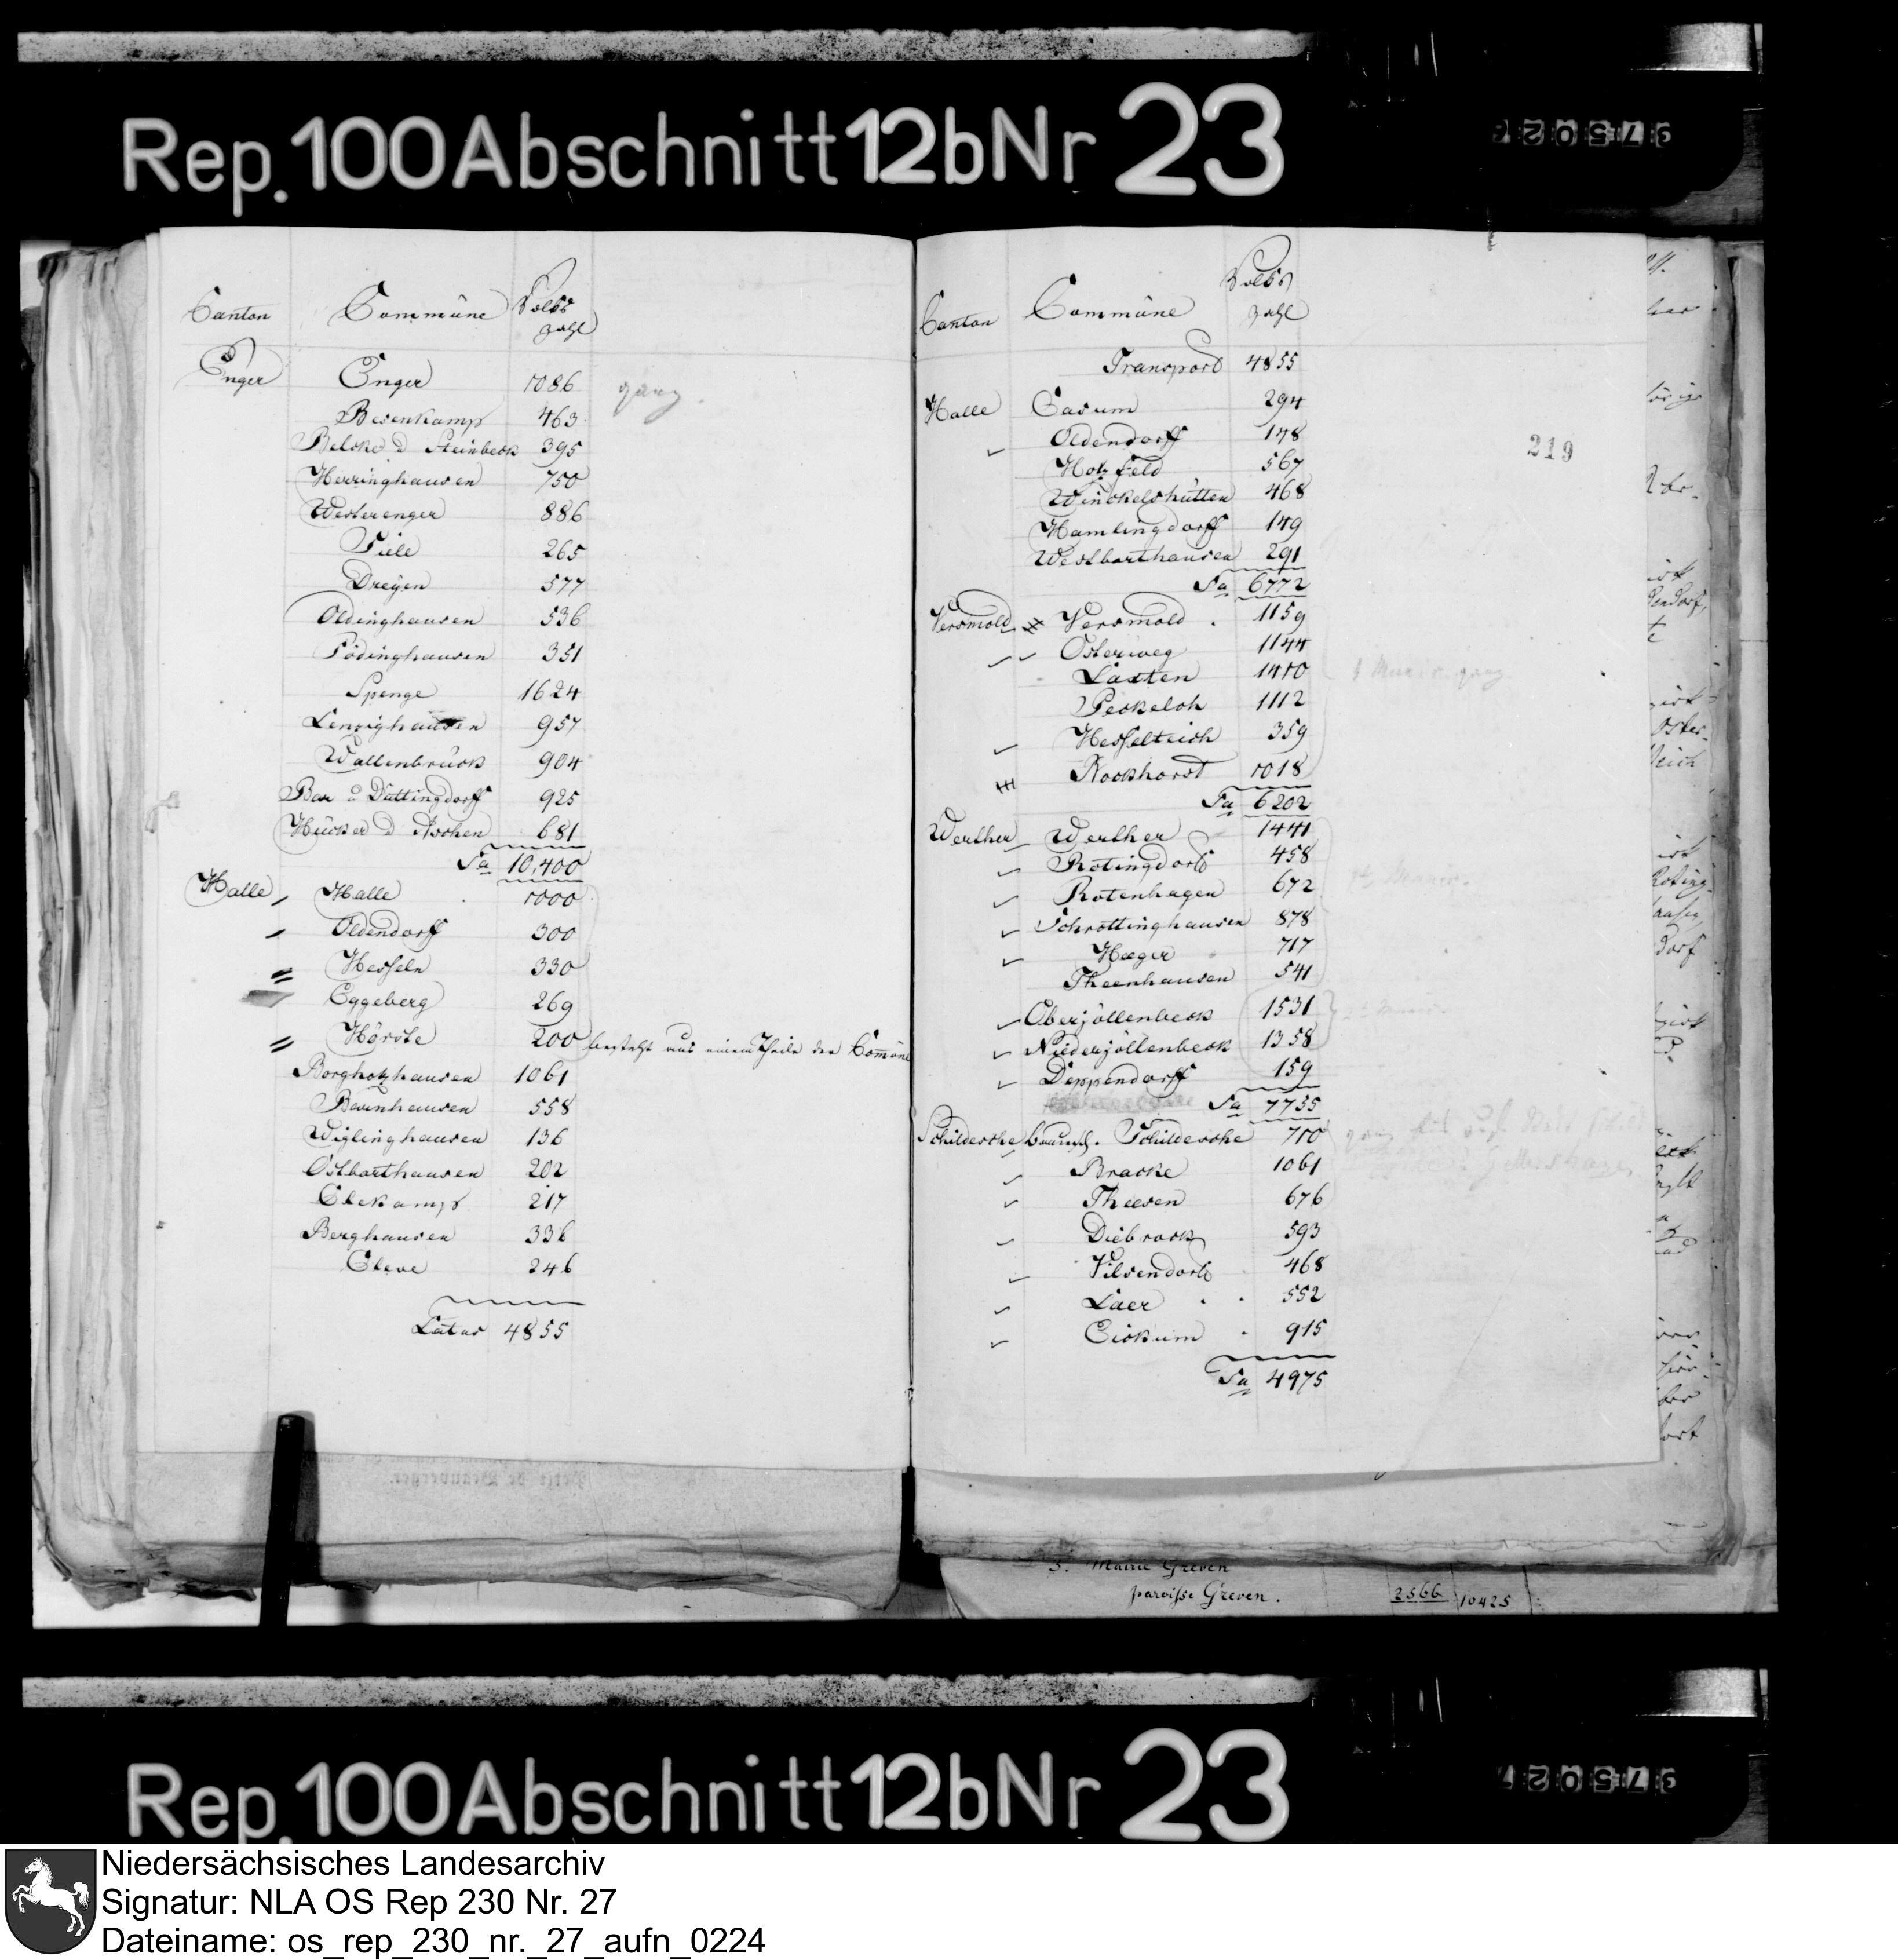 Rep. 100 Abschnitt 12b Nr 23
Canton Commüne Volks zahl
Enger Enger 1086 ganz.
Besenkamp 463
Belcke u Steinbeck 395
Herringhausen 750
Westerenger 886
Siele 265
Dreyen 577
Oldinghausen 536
Pödinghausen 351
Spenge 1624
Lenzighausen 957
Wallenbrück 904
Bar u Düttingdorff 925
Hücker u Aschen 681
Sa 10,400
Halle Halle 1000
Oldendorff 300
Hesseln 330
Eggeberg 269
Hörste 200 besteht aus einem Theile der Commüne
Borgholzhausen 1061
Barnhausen 558
Wiglinghausen 136
Ostbarthausen 202
Clekamp 217
Berghausen 336
Cleve 246
Latus 4855
Canton Commüne Volks zahl
Transport 4855
219
Halle Casum 294
Oldendorff 148
Holzfeld 567
Winckelshütten 468
Hamlingdorff 149
Westbarthausen 291
Sa 6772
Versmold Versmold 1159
Osterweg 1144
Laxten 1410
Peckeloh 1112
Hesselteich 359
Kockhorst 1018
Sa 6202
Werther Werther 1441
Rotingdorf 458
Rotenhagen 672
Schrottinghausen 878
Haeger 717
Theenhausen 541
Oberjöllenbeck 1531
Niederjöllenbeck 1358
Deppendorff 159
Sa 7755
Schildesche Schildesche 710
Bracke 1061
Theesen 676
Diebrock 593
Vilsendorf 468
Laer 552
Eickum 915
Sa 4975
3. Mairie Greven
paroisse Greven. 2566 10425
Rep. 100 Abschnitt 12b Nr 23
Niedersächsisches Landesarchiv
Signatur: NLA OS Rep 230 Nr. 27
Dateiname: os_rep_230_nr._27_aufn_0224